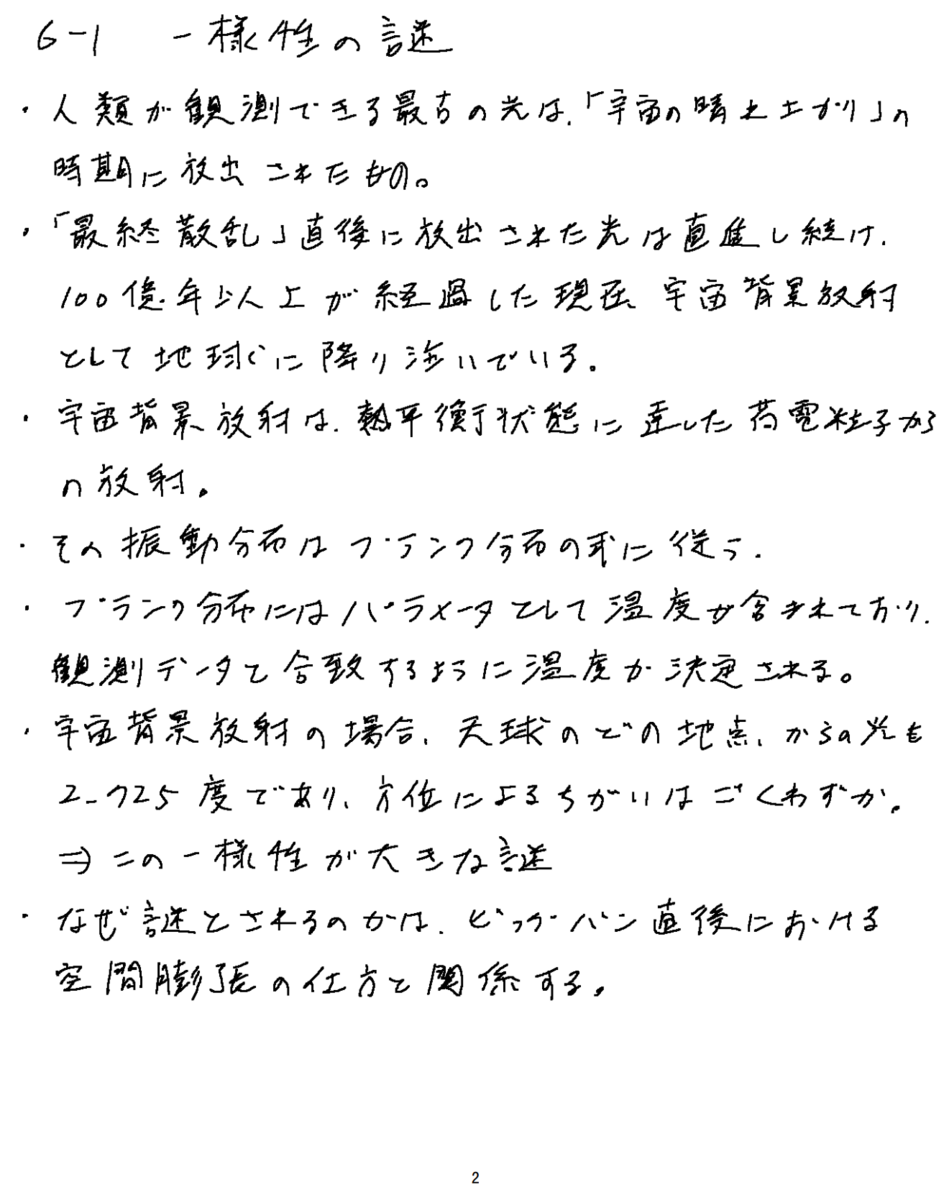 6-1 一様性の謎
・人類が観測できる最古の光は、「宇宙の晴れ上がり」の
時期に放出されたもの。
・「最終散乱」直後に放出された光は直進し続け、
100億年以上が経過した現在、宇宙背景放射
として地球に降り注いでいる。
・宇宙背景放射は、熱平衡状態に達した荷電粒子から
の放射。
・その振動分布はプランク分布の式に従う。
・プランク分布にはパラメータとして温度が含まれており、
観測データと合致するように温度が決定される。
・宇宙背景放射の場合、天球のどの地点からの光も
2.725度であり、方位によるちがいはごくわずか。
⇒この一様性が大きな謎
・なぜ謎とされるのかは、ビッグバン直後における
空間膨張の仕方と関係する。
2